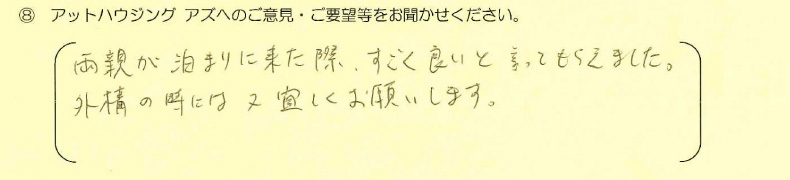 ⑧ アットハウジング アズへのご意見・ご要望等をお聞かせください。
両親が泊まりに来た際、すごく良いと言ってもらえました。
外構の時には又宜しくお願いします。